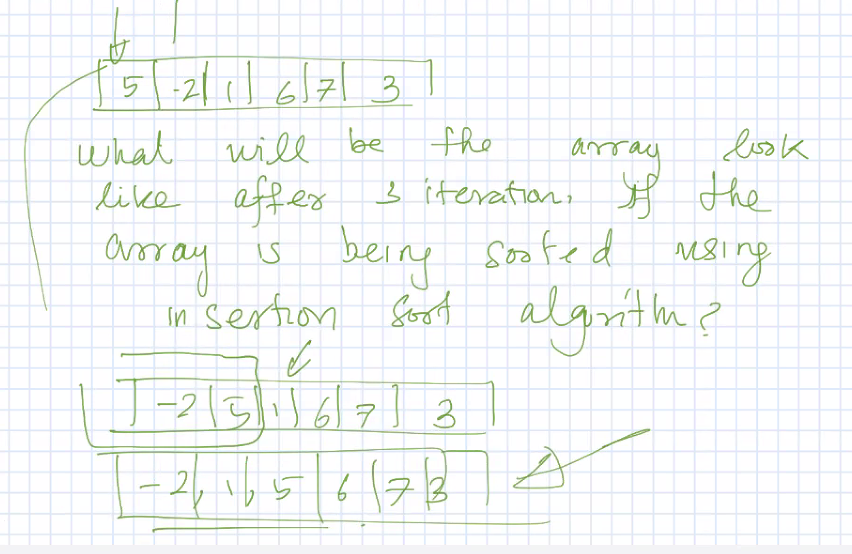 5 | -2 | 1 | 6 | 7 | 3
what will be the array look
like after 3 iteration, If the
array is being sorted using
insertion sort algorithm?
-2 | 5 | 1 | 6 | 7 | 3
-2 | 1 | 5 | 6 | 7 | 3